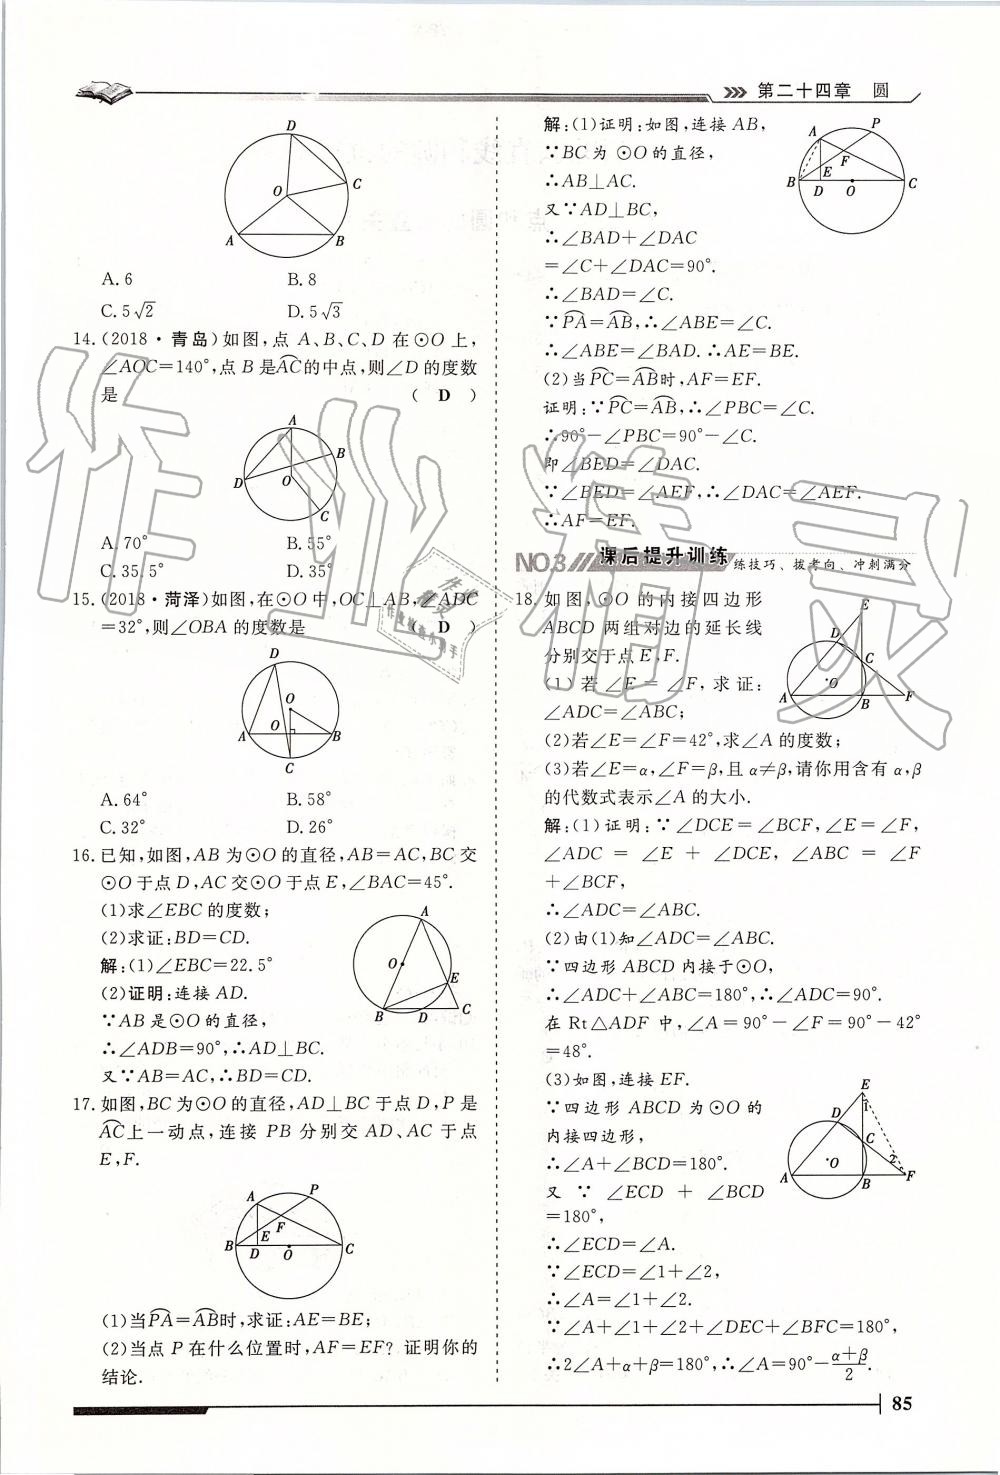 第二十四章 圆
D
O
C
A
B
A.6 B.8
C.5√2 D.5√3
14.(2018·青岛)如图,点 A、B、C、D 在⊙O 上,
∠AOC=140°,点 B 是A͡C的中点,则∠D 的度数
是 ( D )
A
B
D
O
C
A.70° B.55°
C.35.5° D.35°
15.(2018·菏泽)如图,在⊙O 中,OC⊥AB,∠ADC
=32°,则∠OBA 的度数是 ( D )
D
O
O
A
B
C
A.64° B.58°
C.32° D.26°
16.已知,如图,AB 为⊙O 的直径,AB=AC,BC 交
⊙O 于点 D,AC 交⊙O 于点 E,∠BAC=45°.
(1)求∠EBC 的度数;
(2)求证:BD=CD.
解:(1)∠EBC=22.5°
(2)证明:连接 AD.
∵AB 是⊙O 的直径,
∴∠ADB=90°,∴AD⊥BC.
又∵AB=AC,∴BD=CD.
A
O
E
B D C
17.如图,BC 为⊙O 的直径,AD⊥BC 于点 D,P 是
A͡C上一动点,连接 PB 分别交 AD、AC 于点
E,F.
A P
F
E
B D O C
(1)当P͡A=A͡B时,求证:AE=BE;
(2)当点 P 在什么位置时,AF=EF? 证明你的
结论.
解:(1)证明:如图,连接 AB,
∵BC 为 ⊙O 的直径,
∴AB⊥AC.
又∵AD⊥BC,
∴∠BAD+∠DAC
=∠C+∠DAC=90°.
∴∠BAD=∠C.
∵P͡A=A͡B,∴∠ABE=∠C.
∴∠ABE=∠BAD.∴AE=BE.
A P
F
E
B D O C
(2)当P͡C=A͡B时,AF=EF.
证明:∵P͡C=A͡B,∴∠PBC=∠C.
∴90°-∠PBC=90°-∠C.
即∠BED=∠DAC.
∵∠BED=∠AEF,∴∠DAC=∠AEF.
∴AF=EF.
NO.3 课后提升训练 练技巧、拔考向、冲刺满分
18.如图,⊙O 的内接四边形
ABCD 两组对边的延长线
分别交于点 E,F.
(1)若∠E=∠F,求证:
∠ADC=∠ABC;
E
D
C
O
A B F
(2)若∠E=∠F=42°,求∠A 的度数;
(3)若∠E=α,∠F=β,且 α≠β,请你用含有 α,β
的代数式表示∠A 的大小.
解:(1)证明:∵∠DCE=∠BCF,∠E=∠F,
∠ADC=∠E+∠DCE,∠ABC=∠F
+∠BCF,
∴∠ADC=∠ABC.
(2)由(1)知∠ADC=∠ABC.
∵四边形 ABCD 内接于⊙O,
∴∠ADC+∠ABC=180°,∴∠ADC=90°.
在 Rt△ADF 中,∠A=90°-∠F=90°-42°
=48°.
(3)如图,连接 EF.
∵四边形 ABCD 为⊙O 的
内接四边形,
∴∠A+∠BCD=180°.
又∵∠ECD+∠BCD
=180°,
∴∠ECD=∠A.
∵∠ECD=∠1+∠2,
∴∠A=∠1+∠2.
E
1
D
C
2
O
A B F
∵∠A+∠1+∠2+∠DEC+∠BFC=180°,
∴2∠A+α+β=180°,∴∠A=90°-(α+β)/2.
85
作业精灵